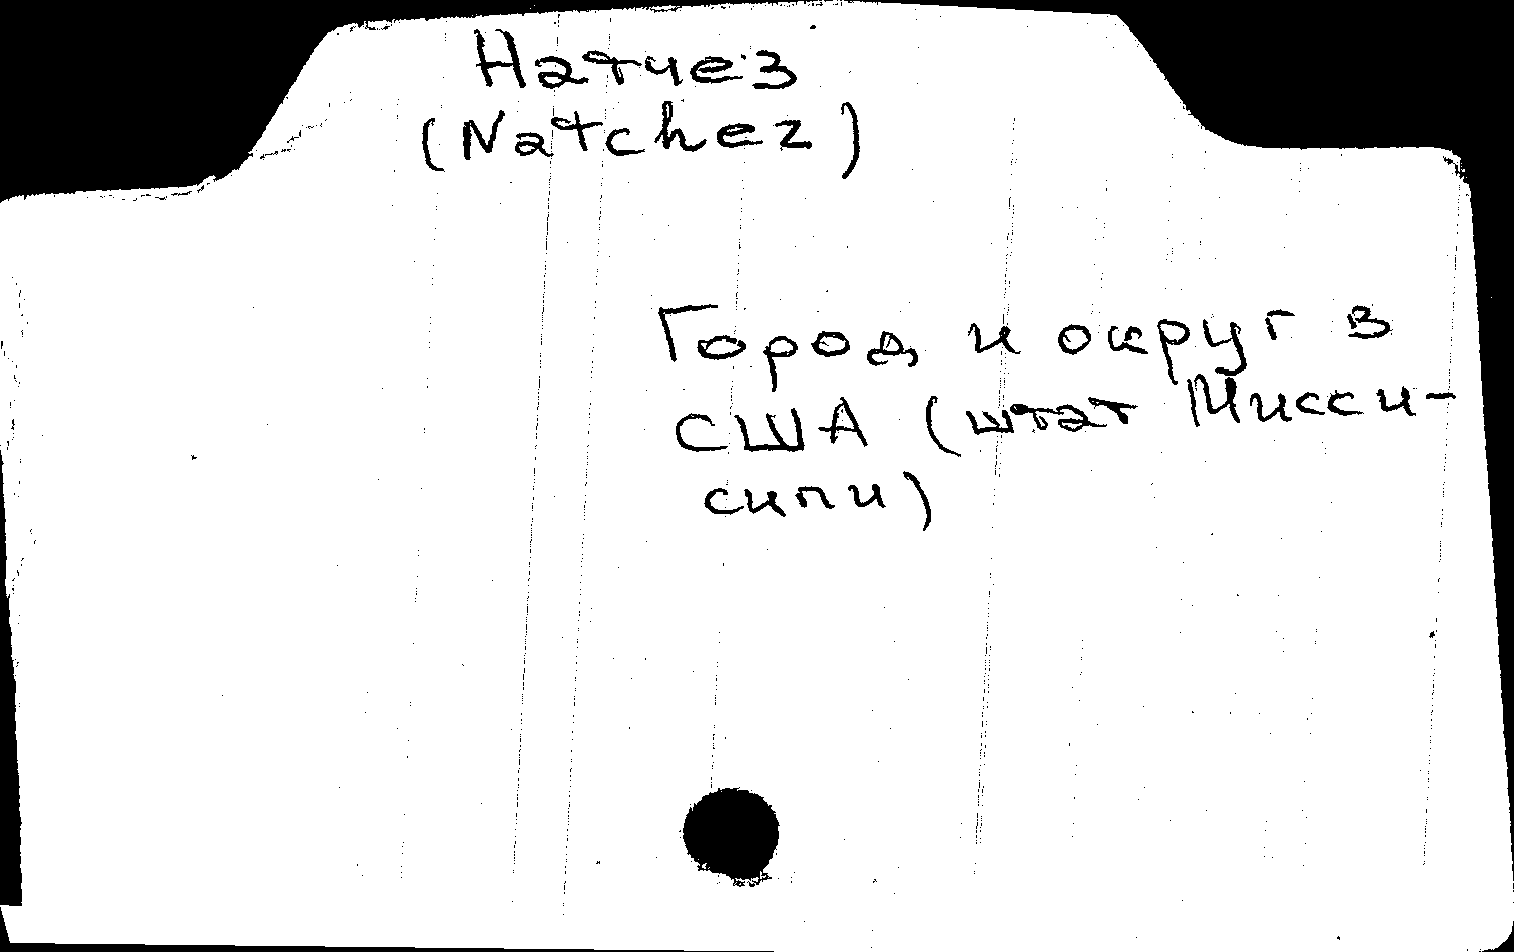 Натчез
(Natchez)
Город и округ в
США (штат Мисси-
сипи)